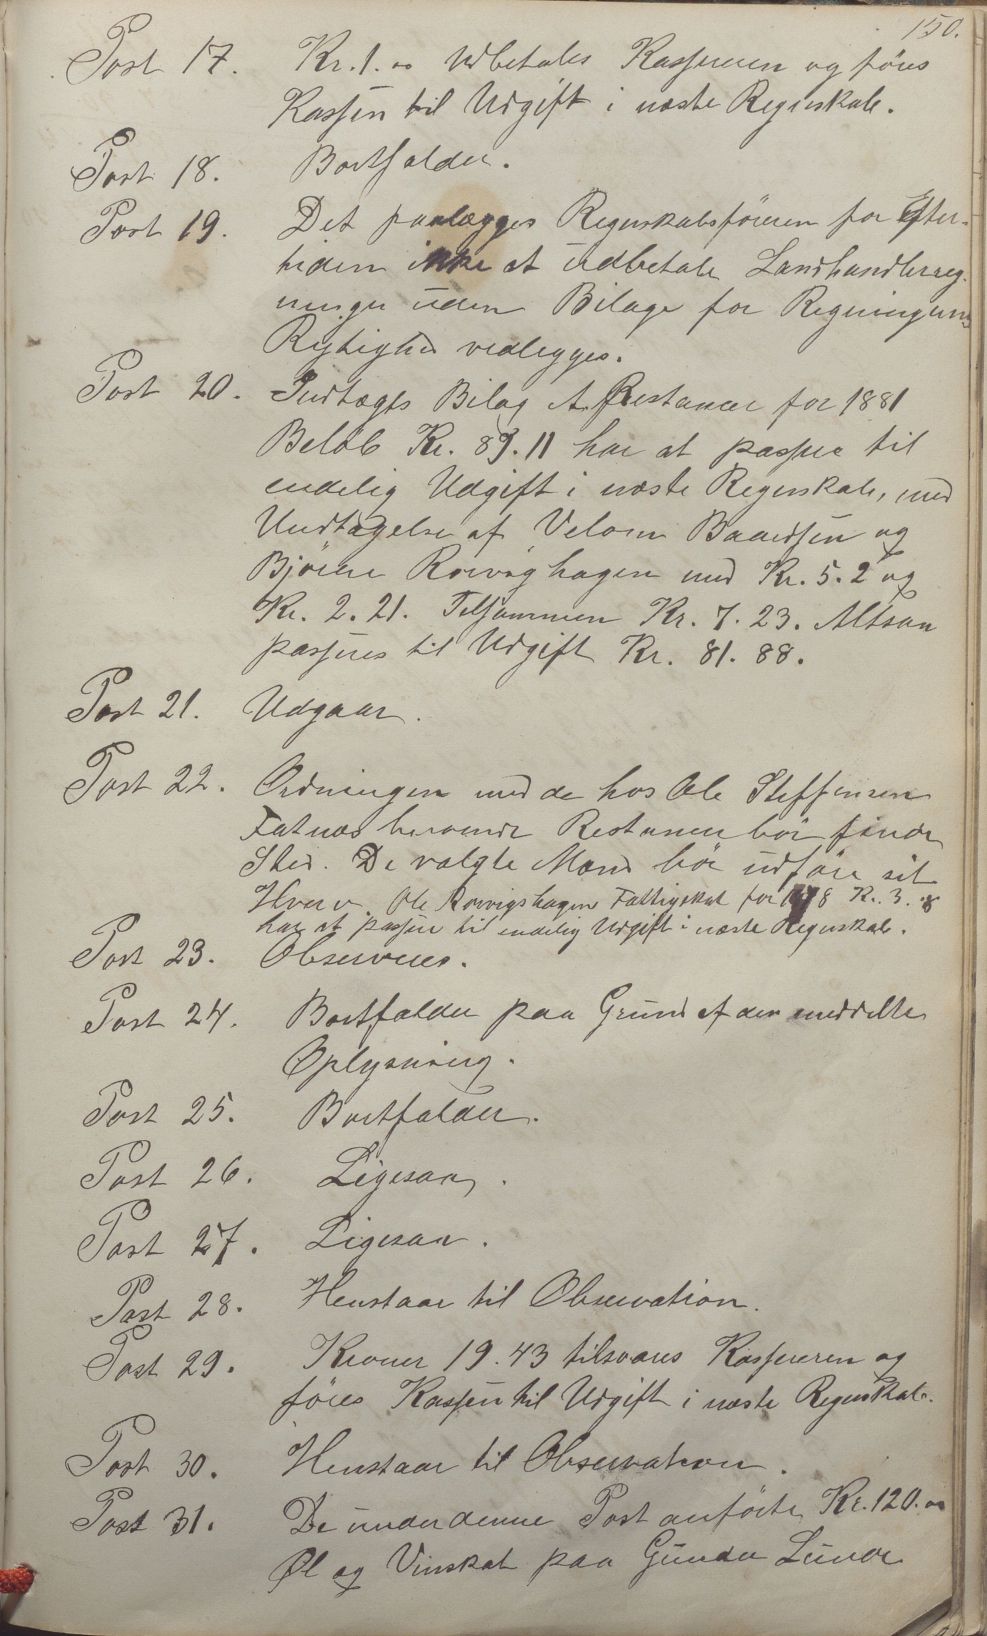 150.
Post 17. Kr. 1. 00 udbetales Kassereren og föres
Kassen til Udgift i næste Regnskab.
Post 18. Bortfalder.
Post 19. Det paalægges Regnskabsföreren for Efter-
tiden ikke at udbetale Landhandlerreg-
ninger uden Bilage for Regningens
Rigtighed vedlegges.
Post 20. Indtægts Bilag A. Restancer for 1881
Belöb Kr. 89.11 har at passere til
endelig Udgift i næste Regnskab, med
Undtagelse af Baardsen og
Björne Rorvighagen med Kr. 5.2 og
Kr. 2.21. Tilsammen Kr. 7.23. Altsaa
passeres til Udgift Kr. 81.88.
Post 21. Udgaar.
Post 22. Ordningen med de hos Ole Steffensen
Fatnæs beroende Restancer bör finde
Sted. De valgte Mænd bör udföre sit
Hverv. Ole Rorvigshagen Fattigskat for 1878 Kr. 3.
har at passere til endelig Udgift i næste Regnskab.
Post 23. Observeres.
Post 24. Bortfalder paa Grund af den meddelte
Oplysning.
Post 25. Bortfalder.
Post 26. Ligesaa.
Post 27. Ligesaa.
Post 28. Henstaar til Observation.
Post 29. Kroner 19.43 tilsvares Kassereren og
föres Kassen til Udgift i næste Regnskab.
Post 30. Henstaar til Observation.
Post 31. De under denne Post anförte Kr. 120. 00
Øl og Vinskat paa Gunder Lunde